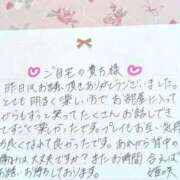 ご自宅の貴方様
昨日はお誘い頂きありがとうございました。
とても明るく楽しい方で お部屋に入って
からもずっと笑ってたくさんお話しでき
てすごく楽しかったです。プレイもお互い気持ち
良くて良かったです。あれから背中の
大丈夫ですか？またお時間合えば
お待ちしております。